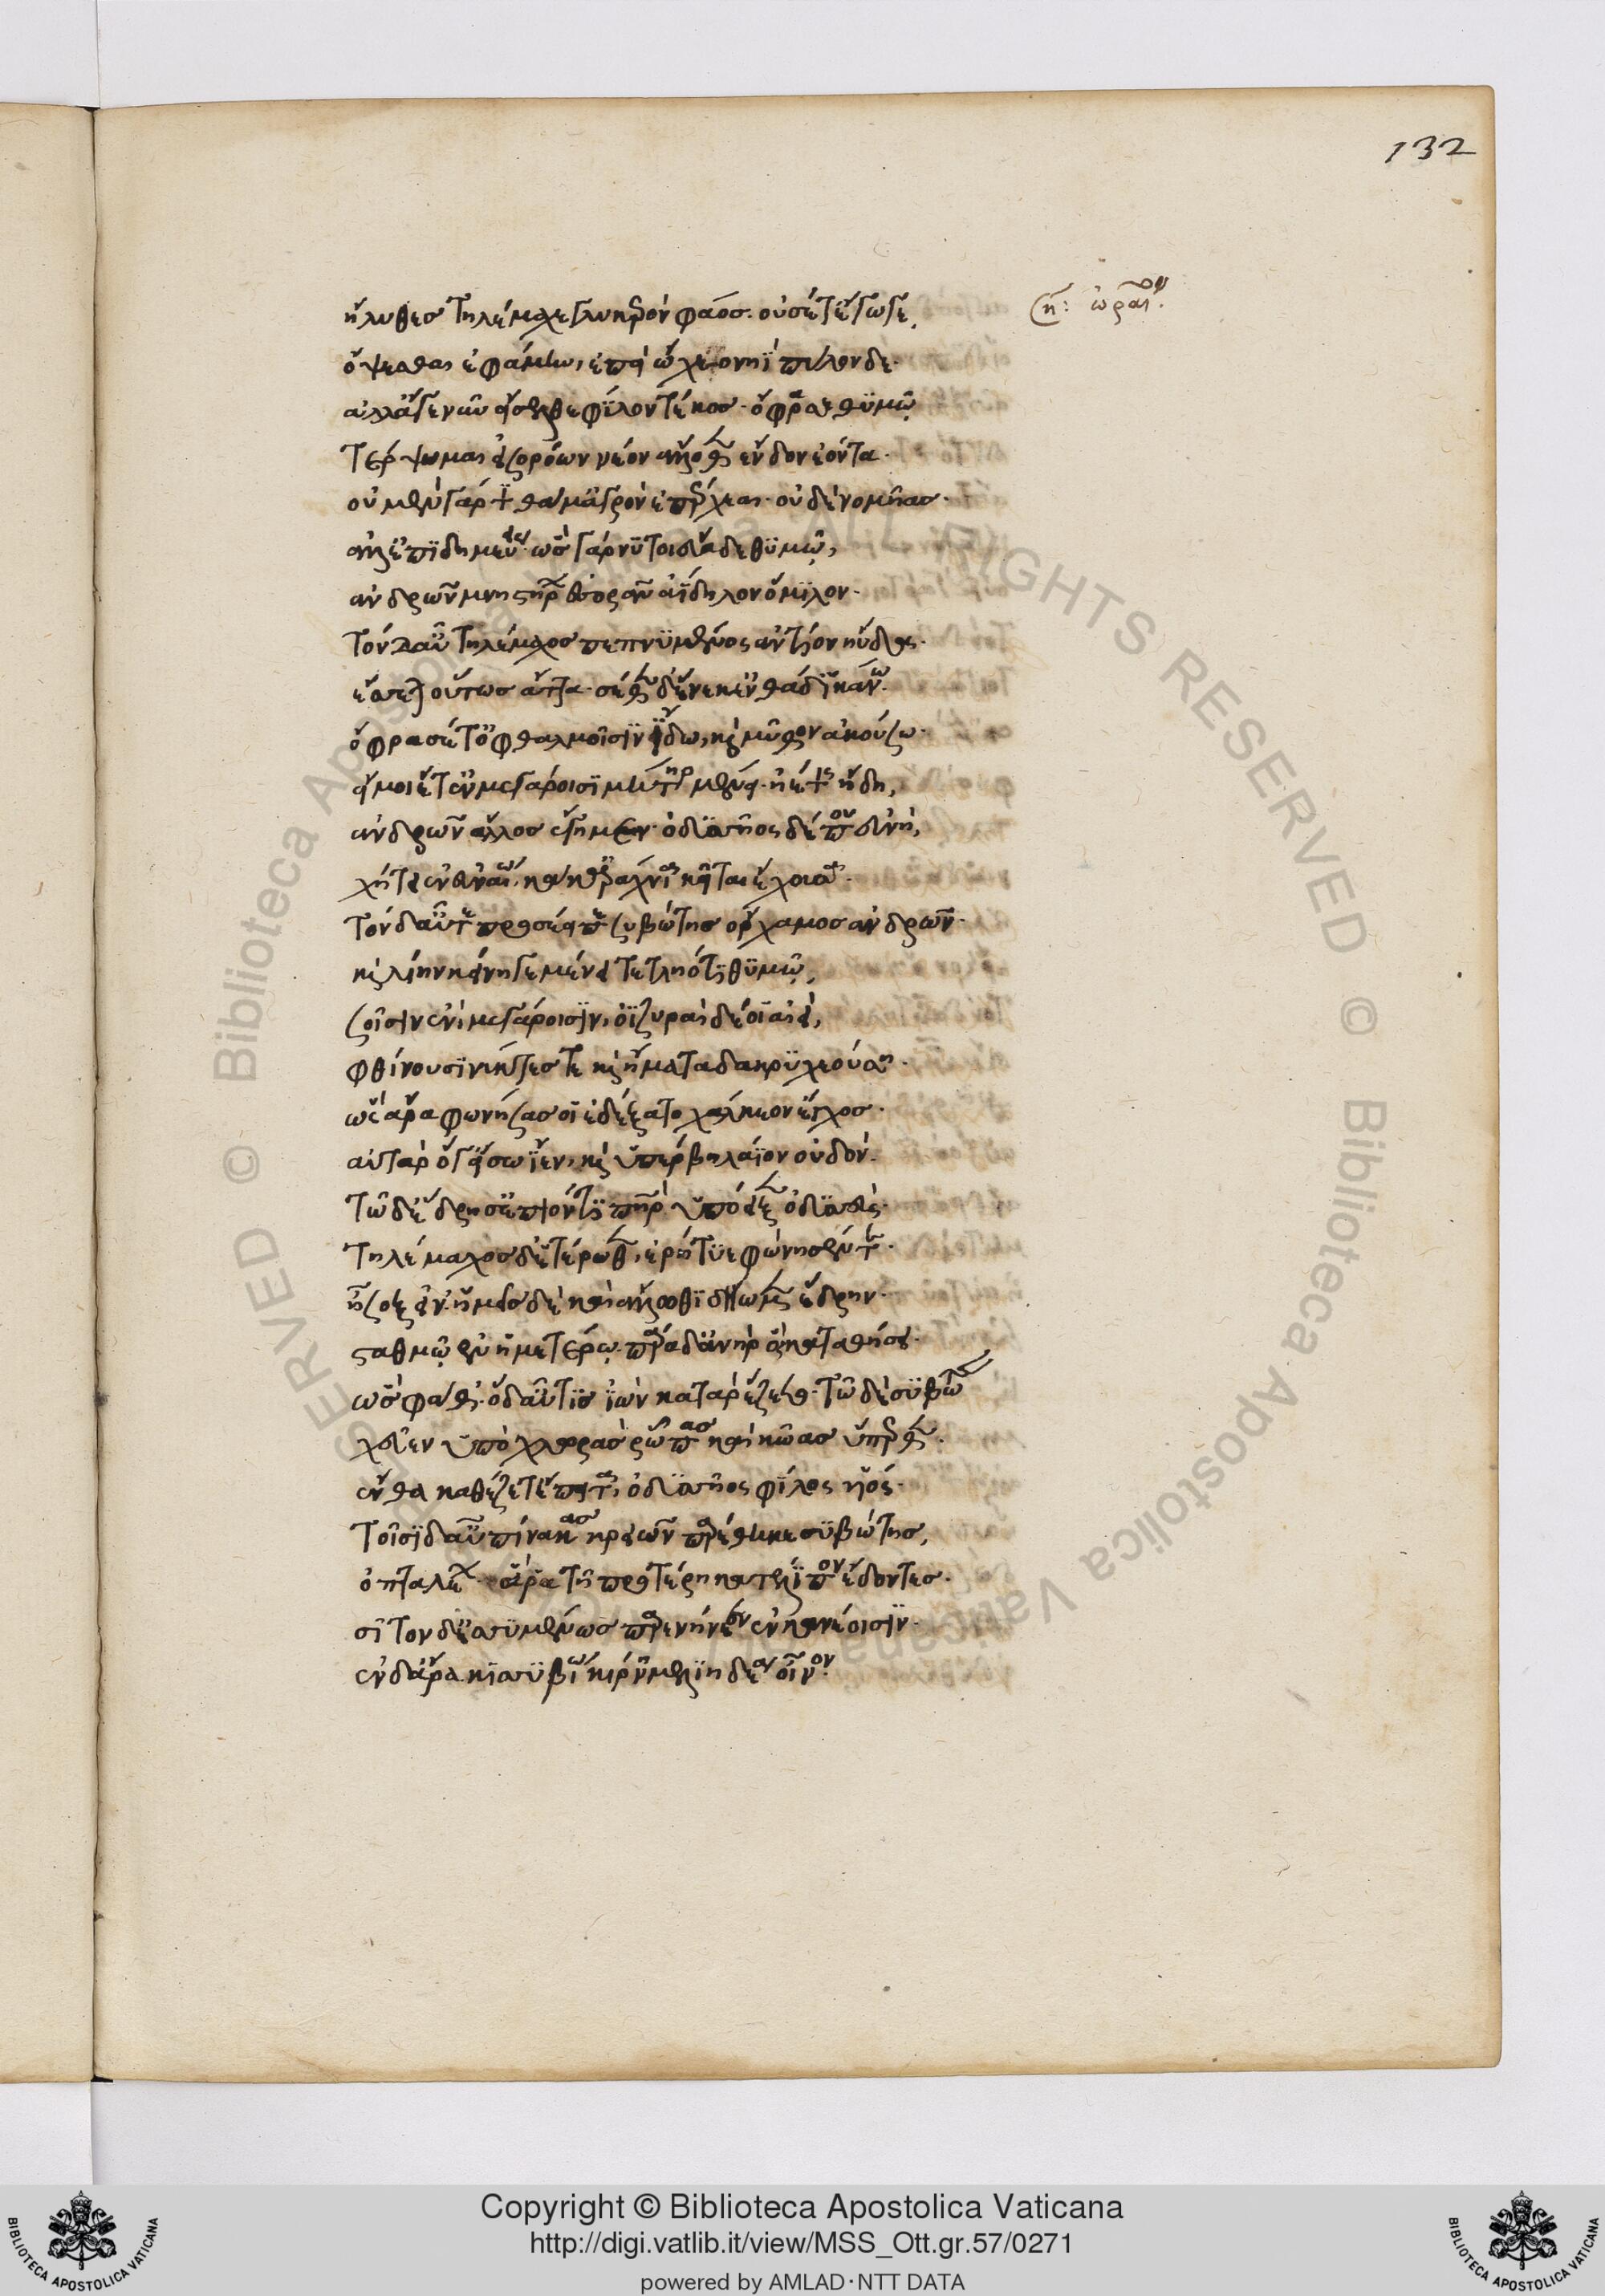 132
ση: ὡραῖον.
ἤλυθες Τηλέμαχε γλυκερὸν φάος. οὔ σ' ἔτ' ἔγωγε,
ὄψεσθαι ἐφάμην, ἐπεὶ ᾤχεο νηῒ πύλονδε.
ἀλλ' ἄγε νῦν εἴσελθε φίλον τέκος. ὄφρά σε θυμῷ
τέρψομαι εἰσορόων νέον ἄλλοθεν ἔνδον ἐόντα.
οὐ μὲν γάρ τι θάμ' ἀγρὸν ἐπέρχεαι. οὐδὲ νομῆας.
ἀλλ' ἐπιδημεύεις. ὣς γάρ νύ τοι εὔαδε θυμῷ,
ἀνδρῶν μνηστήρων ἐσορᾶν ἀΐδηλον ὅμιλον.
τὸν δ' αὖ Τηλέμαχος πεπνυμένος ἀντίον ηὔδα.
ἔσσεται οὕτως ἄττα. σέθεν δ' ἕνεκ' ἐνθάδ' ἱκάνω.
ὄφρα σέ τ' ὀφθαλμοῖσιν ἴδω, καὶ μῦθον ἀκούσω.
εἴ μοι ἔτ' ἐν μεγάροισι μήτηρ μένει. ἦέ τις ἤδη,
ἀνδρῶν ἄλλος ἔγημεν. ὀδυσσῆος δέ που εὐνὴ,
χήτει ἐνευναίων, κάκ' ἀράχνια κεῖται ἔχουσα.
τὸν δ' αὖτε προσέειπε συβώτης ὄρχαμος ἀνδρῶν.
καὶ λίην κείνη γε μένει τετληότι θυμῷ,
σοῖσιν ἐνὶ μεγάροισιν, ὀϊζυραὶ δέ οἱ αἰεὶ,
φθίνουσιν νύκτες τε καὶ ἤματα δακρυχεούσῃ.
ὣς ἄρα φωνήσας οἱ ἐδέξατο χάλκεον ἔγχος.
αὐτὰρ ὅ γ' εἴσω ἴεν, καὶ ὑπέρβη λάϊνον οὐδόν.
τῷ δ' ἕδρης ἐπιόντι πατὴρ ὑπόειξεν ὀδυσσεύς.
Τηλέμαχος δ' ἑτέρωθεν, ἐρήτυε φώνησέν τε.
ἧσο ξεῖν'. ἡμεῖς δὲ καὶ ἄλλοθι δήομεν ἕδρην.
σταθμῷ ἐν ἡμετέρῳ. παρὰ δ' ἀνὴρ ὃς καταθήσει.
ὣς φάθ'. ὁ δ' αὖτις ἰὼν κατ' ἄρ' ἕζετο. τῷ δὲ συβώτης
χεῦεν ὕπο χλωρὰς ῥῶπας καὶ κῶας ὕπερθεν.
ἔνθα καθέζετ' ἔπειτα, ὀδυσσῆος φίλος υἱός.
τοῖσι δ' αὖ πίνακας κρειῶν παρέθηκε συβώτης,
ὀπταλέων. ἅ ῥα τῇ προτέρῃ κατέλειπον ἔδοντες.
σῖτον δ' ἐσσυμένως παρενήνεεν ἐν κανέοισιν.
ἐν δ' ἄρα κισσυβίῳ κίρνη μελιηδέα οἶνον.
Copyright © Biblioteca Apostolica Vaticana
http://digi.vatlib.it/view/MSS_Ott.gr.57/0271
powered by AMLAD·NTT DATA